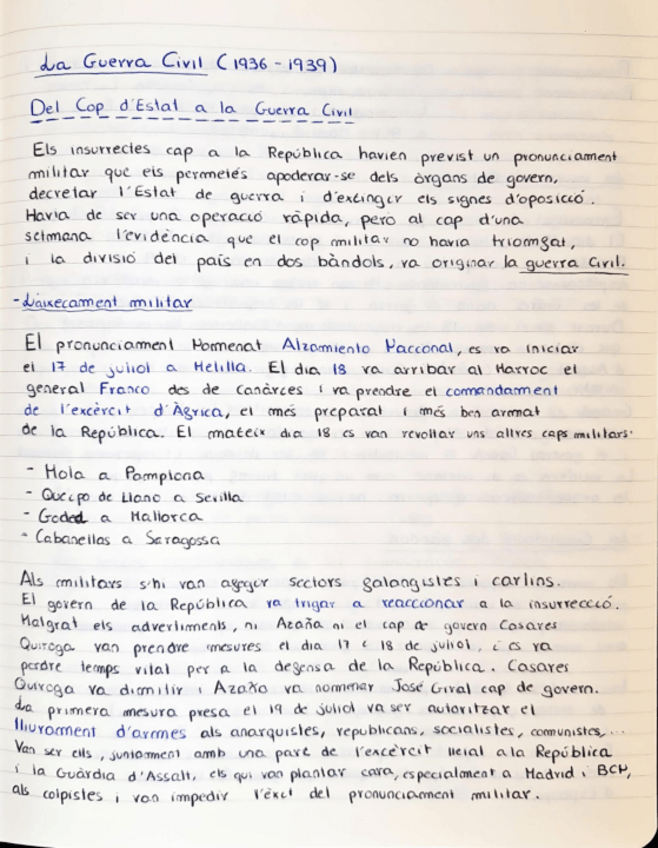 La Guerra Civil (1936-1939)
Del Cop d'Estat a la Guerra Civil
Els insurrectes cap a la República havien previst un pronunciament
militar que els permetés apoderar-se dels òrgans de govern,
decretar l'Estat de guerra i d'extingir els signes d'oposició.
Havia de ser una operació ràpida, però al cap d'una
setmana l'evidència que el cop militar no havia triomfat,
i la divisió del país en dos bàndols, va originar la guerra civil.
- L'aixecament militar
El pronunciament Nomenat Alzamiento Nacional, es va iniciar
el 17 de juliol a Melilla. El dia 18 va arribar al Marroc el
general Franco des de Canàries i va prendre el comandament
de l'exèrcit d'Àfrica, el més preparat i més ben armat
de la República. El mateix dia 18 es van revoltar uns altres caps militars:
- Mola a Pamplona
- Queipo de Llano a Sevilla
- Goded a Mallorca
- Cabanellas a Saragossa
Als militars s'hi van afegir sectors falangistes i carlins.
El govern de la República va trigar a reaccionar a la insurrecció.
Malgrat els advertiments, ni Azaña ni el cap de govern Casares
Quiroga van prendre mesures el dia 17 i 18 de juliol, i es va
perdre temps vital per a la defensa de la República. Casares
Quiroga va dimitir i Azaña va nomenar José Giral cap de govern.
La primera mesura presa el 19 de juliol va ser autoritzar el
lliurament d'armes als anarquistes, republicans, socialistes, comunistes,...
Van ser ells, juntament amb una part de l'exèrcit lleial a la República
i la Guàrdia d'Assalt, els qui van plantar cara, especialment a Madrid i BCN,
als colpistes i van impedir l'èxit del pronunciament militar.